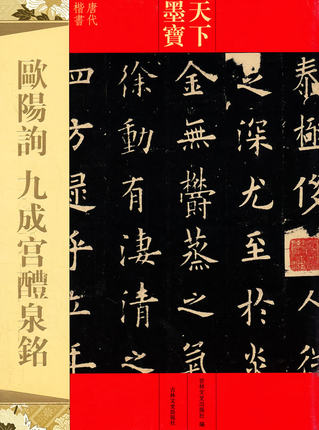 天下
墨寶
唐代
楷書
歐陽詢 九成宫醴泉銘
泰極侈
足深尤至於炎
金無鬱蒸之氣
徐動有淒清之
四方逮乎立
吉林文史出版社 編
吉林文史出版社